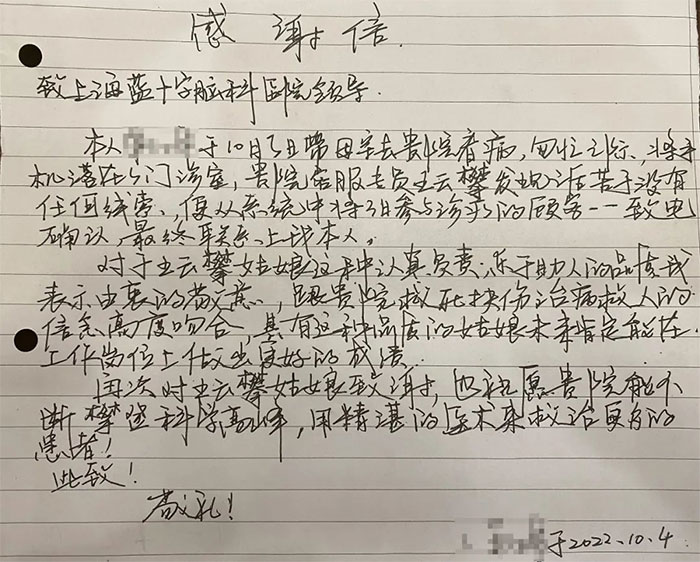 感谢信
致上海蓝十字脑科医院领导
本人于10月3日带母亲去贵院看病,匆忙之际、将手
机遗落在门诊室,贵院客服专员王云攀发现后苦于没有
任何线索、便从系统中将3日参与诊疗的顾客一一致电
确认,最终联系上我本人。
对于王云攀姑娘这种认真负责、乐于助人的品质我
表示由衷的敬意,跟贵院救死扶伤治病救人的
信念高度吻合,具有这种品质的姑娘未来肯定能在
工作岗位上做出良好的成绩.
再次对王云攀姑娘致谢,也祝愿贵院能不
断攀登科学高峰,用精湛的医术来救治更多的
患者!
此致!
敬礼!
于2022.10.4